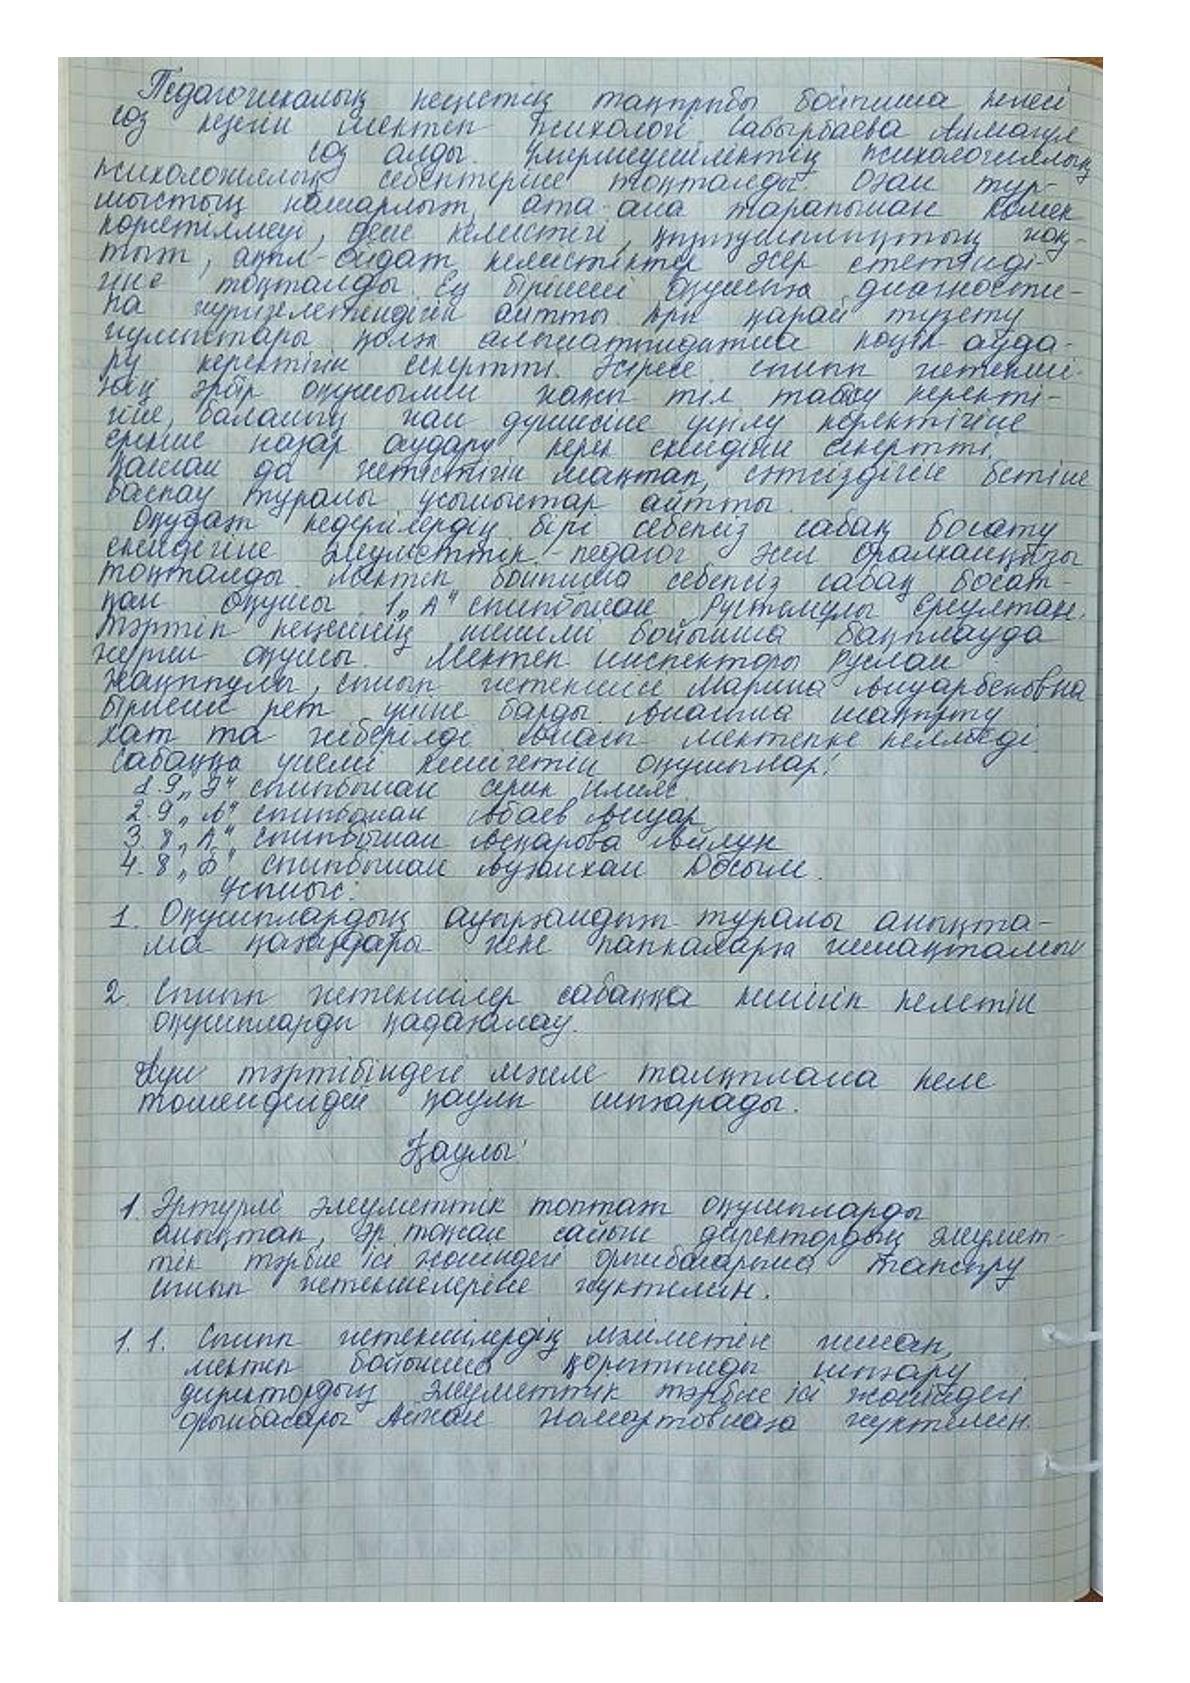 Педагогикалық кеңестің тақырыбы бойынша келесі
сөз кезегін мектеп психологі Сабырбаева Алмагүл
сөз алды. Үлгермеушіліктің психологиялық
психологиялық себептеріне тоқталды. Оған тұр-
мыстың нашарлығы, ата-ана тарапынан көмек
көрсетілмеуі, дене кемістігі, қызығушылықтың жоқ-
тығы, ақыл-ойдағы кемістіктер әсер ететінді-
гіне тоқталды. Ең бірінші оқушыға диагности-
ка жүргізілетіндігін айтты. Әрі қарай түзету
жұмыстары қолға алынатындығына көңіл ауда-
ру керектігін ескертті. Әсіресе сынып жетекші-
нің әрбір оқушымен жақы тіл табу керекті-
гіне, баланың жан дүниесіне үңілу керектігіне
ерекше назар аудару керек екендігін ескертті.
Қашан да жетістігін мақтап, сәтсіздігін бетіне
баспау туралы ұсыныстар айтты.
Оқудағы кедергілердің бірі себепсіз сабақ босату
екендігіне әлеуметтік педагог Әсел Оралханқызы
тоқталды. Мектеп бойынша себепсіз сабақ босат-
қан оқушы 1 „А" сыныбынан Рүстемұлы Ерсұлтан.
Тәртіп кеңесінің шешімі бойынша бақылауда
жүрген оқушы. Мектеп инспекторы Руслан
Жақыпұлы, сынып жетекшісі Марина Ануарбековна
бірнеше рет үйіне барды. Анасына шақырту
хат та жіберілді анасы мектепке келмеді.
Сабаққа үнемі кешігетін оқушылар:
1. 9 „Ә" сыныбынан Серік Ілияс
2. 9 „А" сыныбынан Абаев Ануар
3. 8 „А" сыныбынан Асқарова Айлун
4. 8 „Б" сыныбынан Аузалхан Досым.
Ұсыныс:
1. Оқушылардың ауырғандығы туралы анықта-
ма қағаздары жеке папкаларға жинақталсын
2. Сынып жетекшілер сабаққа кешігіп келетін
оқушыларды қадағалау.
Күн тәртібіндегі мәселе талқылана келе
төмендегідей қаулы шығарады.
Қаулы:
1. Әртүрлі әлеуметтік топтағы оқушыларды
анықтап, әр тоқсан сайын директордың әлеумет-
тік тәрбие ісі жөніндегі орынбасарына тапсыру
сынып жетекшелеріне жүктелсін.
1.1. Сынып жетекшілердің мәліметін жинап,
мектеп бойынша қорытынды шығару
директордың әлеуметтік тәрбие ісі жөніндегі
орынбасары Айжан Жомартовнаға жүктелсін.